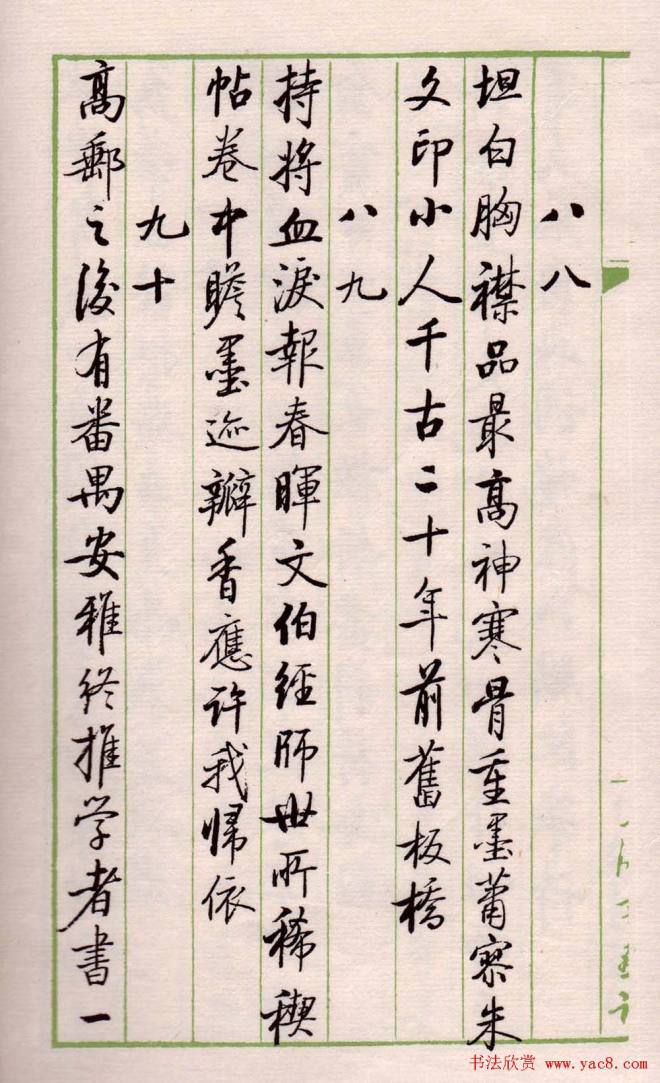 八八
坦白胸襟品最高神寒骨重墨萧寥朱
文印小人千古二十年前旧板橋
八九
持将血淚報春暉文伯经師世所稀禊
帖卷中瞻墨迹瓣香應许我归依
九十
高郵之後有番禺安雅终推学者書一
书法欣赏 www.yac8.com